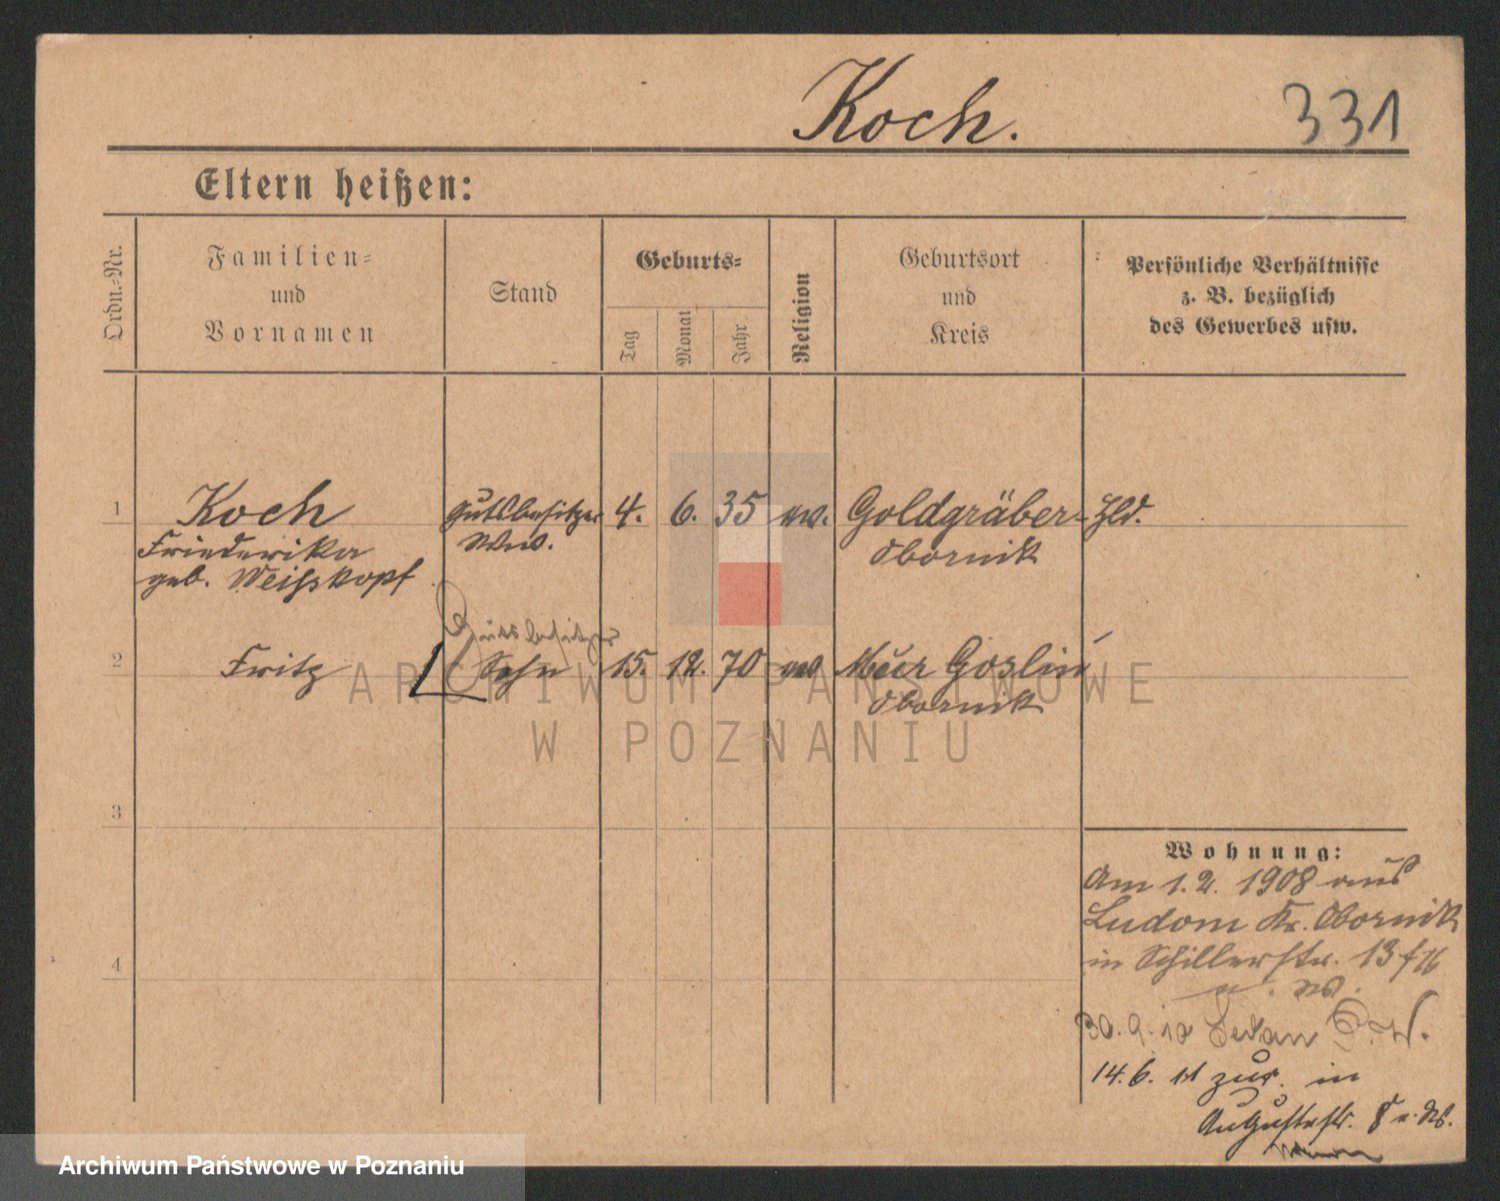 Koch. 331
Eltern heißen:
Ordn.-Nr.
Familien-
und
Vornamen
Stand
Geburts-
Tag
Monat
Jahr
Religion
Geburtsort
und
Kreis
Persönliche Verhältnisse
z. B. bezüglich
des Gewerbes usw.
1 Koch Gutsbesitzer 4. 6. 35 ew. Goldgräber-Hld.
Friederika Ww. Obornik
geb. Weisskopf
Gutsbesitzer
2 Fritz Sohn 15. 12. 70 ew Goslin
Obornik
3
4
Wohnung:
Am 1.2. 1908 aus
Ludom Kr. Obornik
in Schillerstr. 13
30.9.10 Sedan
14.6. 11 zur. in
Augustastr. 8
ARCHIWUM PAŃSTWOWE
W POZNANIU
Archiwum Państwowe w Poznaniu